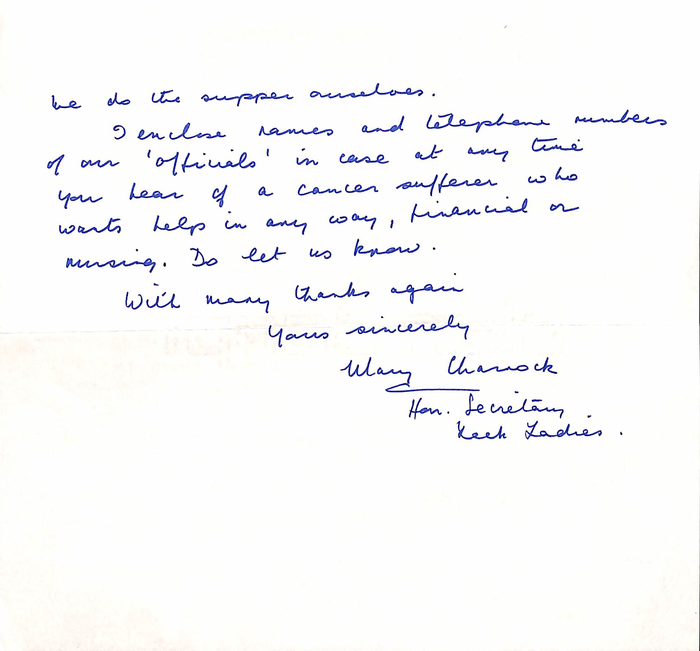 we do the supper ourselves.
I enclose names and telephone numbers
of our 'officials' in case at any time
you hear of a cancer sufferer who
wants help in any way, financial or
nursing. Do let us know.
With many thanks again
Yours sincerely
Mary Charnock
Hon. Secretary
Ladies.